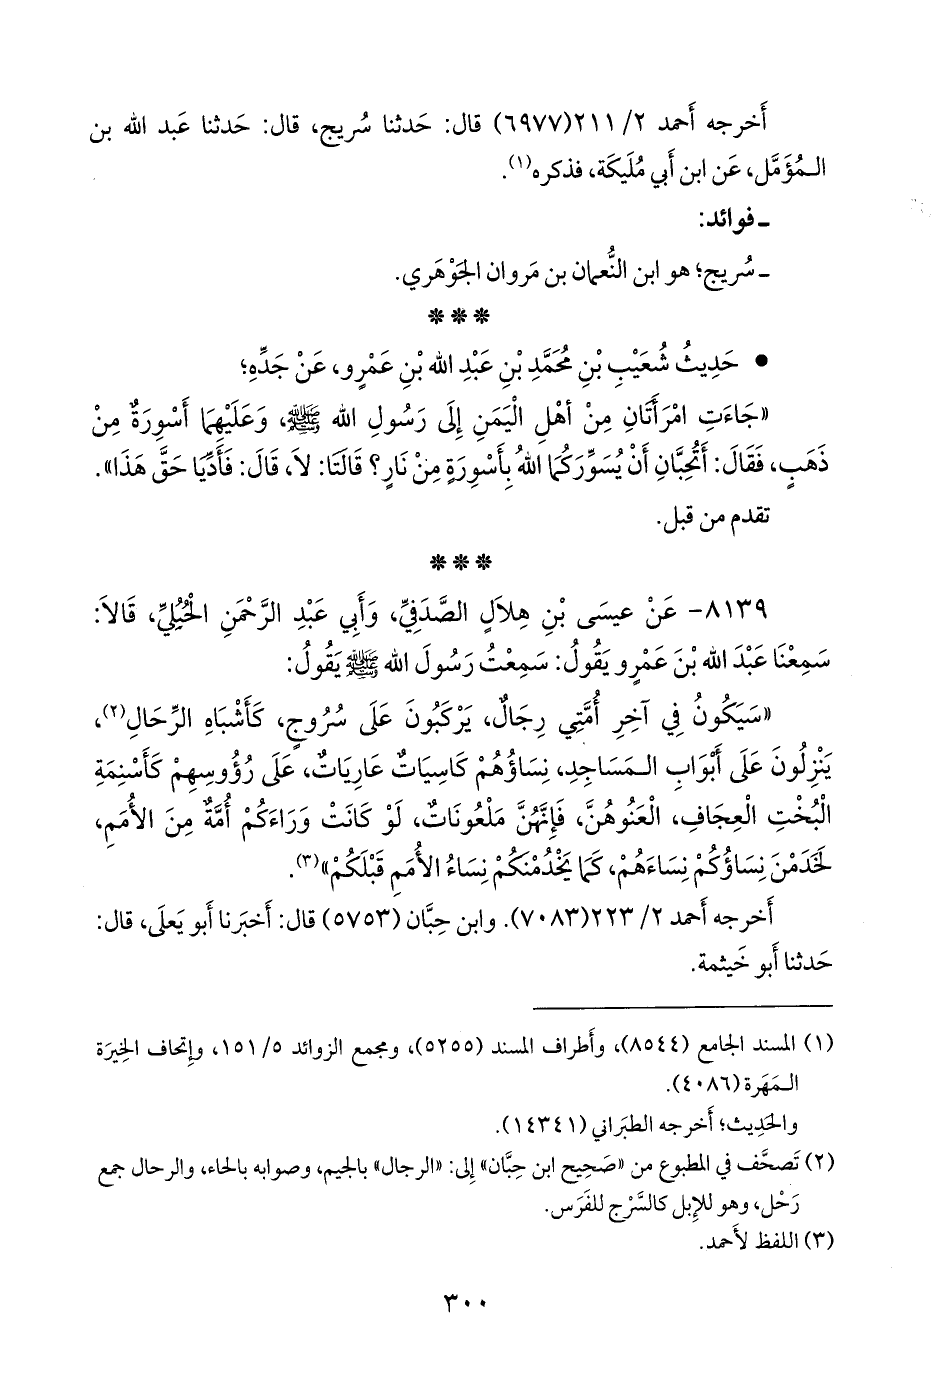 أَخرجه أَحمد ٢/ ٢١١(٦٩٧٧) قال: حَدثنا سُريج، قال: حَدثنا عَبد الله بن
المُؤَمَّل، عَن ابن أَبي مُلَيكَة، فذكره(١).
ـ فوائد:
ـ سُريج؛ هو ابن النُّعمان بن مَروان الجَوْهَري.
***
• حَدِيثُ شُعَيْبِ بْنِ مُحَمَّدِ بْنِ عَبْدِ الله بْنِ عَمْرٍو، عَنْ جَدِّهِ؛
«جَاءَتِ امْرَأَتَانِ مِنْ أَهْلِ الْيَمَنِ إِلَى رَسُولِ الله ﷺ، وَعَلَيْهِمَا أَسْوِرَةٌ مِنْ
ذَهَبٍ، فَقَالَ: أَتُحِبَّانِ أَنْ يُسَوِّرَكُمَا اللهُ بِأَسْوِرَةٍ مِنْ نَارٍ؟ قَالَتَا: لاَ، قَالَ: فَأَدِّيَا حَقَّ هَذَا».
تقدم من قبل.
***
٨١٣٩- عَنْ عِيسَى بْنِ هِلاَلٍ الصَّدَفِيِّ، وَأَبِي عَبْدِ الرَّحْمَنِ الْحُبُلِيِّ، قَالاَ:
سَمِعْنَا عَبْدَ الله بْنَ عَمْرٍو يَقُولُ: سَمِعْتُ رَسُولَ الله ﷺ يَقُولُ:
«سَيَكُونُ فِي آخِرِ أُمَّتِي رِجَالٌ، يَرْكَبُونَ عَلَى سُرُوجٍ، كَأَشْبَاهِ الرِّحَالِ(٢)،
يَنْزِلُونَ عَلَى أَبْوَابِ المَسَاجِدِ، نِسَاؤُهُمْ كَاسِيَاتٌ عَارِيَاتٌ، عَلَى رُؤُوسِهِمْ كَأَسْنِمَةِ
الْبُخْتِ الْعِجَافِ، الْعَنُوهُنَّ، فَإِنَّهُنَّ مَلْعُونَاتٌ، لَوْ كَانَتْ وَرَاءَكُمْ أُمَّةٌ مِنَ الأُمَمِ،
لَخَدَمْنَ نِسَاؤُكُمْ نِسَاءَهُمْ، كَمَا يَخْدُمْنَكُمْ نِسَاءُ الأُمَمِ قَبْلَكُمْ»(٣).
أَخرجه أَحمد ٢/ ٢٢٣(٧٠٨٣). وابن حِبَّان (٥٧٥٣) قال: أَخبَرنا أَبو يَعلَى، قال:
حَدثنا أَبو خَيثمة.
(١) المسند الجامع (٨٥٤٤)، وأَطراف المسند (٥٢٥٥)، ومجمع الزوائد ٥/ ١٥١، وإِتحاف الخِيرَة
المَهَرة (٤٠٨٦).
والحَدِيث؛ أَخرجه الطبَراني (١٤٣٤١).
(٢) تَصحَّف في المطبوع من «صَحِيح ابن حِبَّان» إِلى: «الرجال» بالجيم، وصوابه بالحاء، والرحال جمع
رَحْل، وهو للإِبل كالسَّرْج للفَرَس.
(٣) اللفظ لأَحمد.
٣٠٠